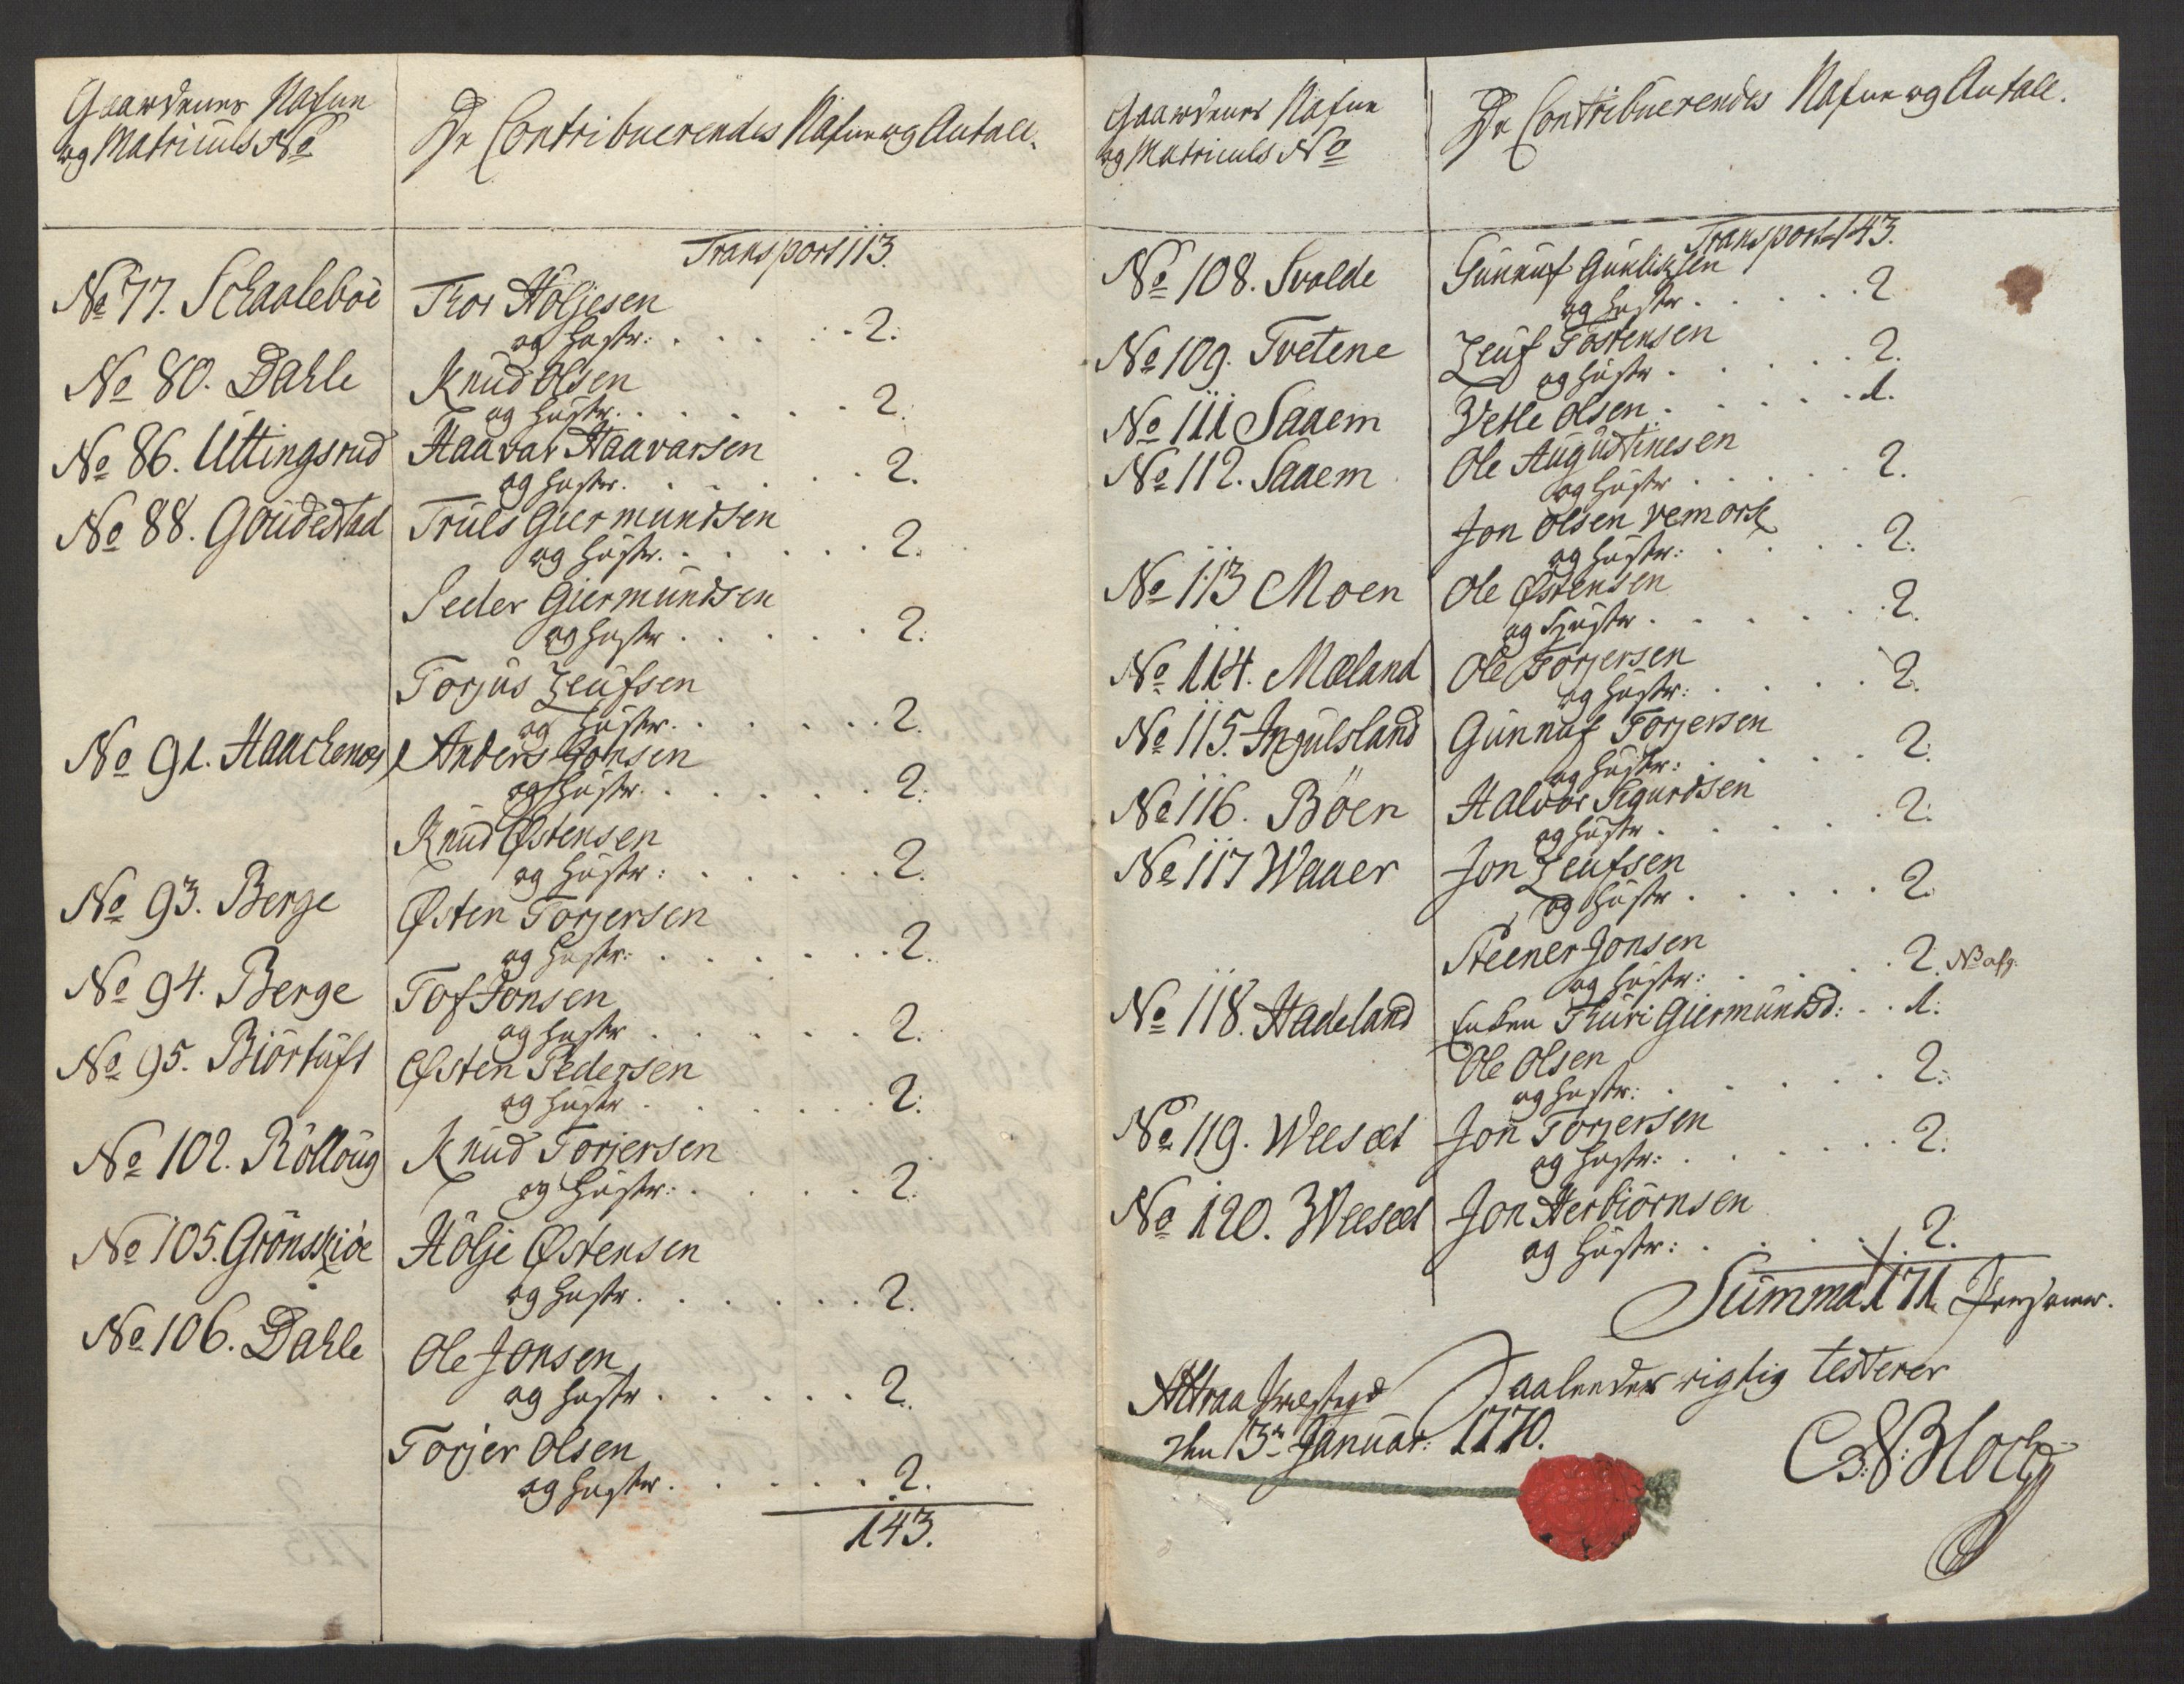 Gaardenes Nafne
og Matriculs No
De Contribuerendes Nafne og Antall.
Transport 113.
No 77. Schaaleböe
Thor Höljesen
og Hustr: . . . . . 2.
No 80. Dahle
Knud Olsen
og Hustr. . . . . . 2.
No 86. Uttingsrud
Haavar Haavarsen
og Hustr. . . . . . 2.
No 88. Goudestad
Truls Giermundsen
og Hustr. . . . . . 2.
Peder Giermundsen
og Hustr . . . . . 2.
Torjus Leufsen
og Hustr. . . . . . 2.
No 91. Haachenæs
Anders Jonsen
og Hustr. . . . . . 2.
Knud Østensen
og Hustr: . . . . . 2.
No 93. Berge
Østen Torjersen
og Hustr: . . . . . 2.
No 94. Berge
Tof Jonsen
og Hustr . . . . . 2.
No 95. Biörtuft
Østen Pedersen
og Hustr . . . . . 2.
No 102. Röllöug
Knud Torjersen
og Hustr: . . . . 2.
No 105. Grönskiöe
Hölje Østensen
og Hustr. . . . . . 2.
No 106. Dahle
Ole Jonsen
og Hustr . . . . . 2.
Torjer Olsen
og Hustr. . . . . 2.
143.
Gaardenes Nafne
og Matriculs No
De Contribuerendes Nafne og Antall.
Transport 143.
No 108. Svalde
Gunnuf Gunliksen
og Hustr. . . . . 2
No 109. Tvetene
Leuf Tostensen
og Hustr . . . . . 2.
No 111 Saaem
Vetle Olsen . . . . . 1.
No 112. Saaem
Ole Augustinesen
og Hustr . . . . . 2.
Jon Olsen Vemork
og Hustr: . . . . 2.
No 113 Moen
Ole Østensen
og Hustr . . . . . 2.
No 114. Mæland
Ole Torjersen
og Hustr: . . . . 2.
No 115. Ingulsland
Gunnuf Torjersen
og Hustr: . . . . 2.
No 116. Böen
Halvor Sigurdsen
og Hustr . . . . . 2.
No 117 Waaer
Jon Leufsen
og Hustr . . . . . 2.
Steener Jonsen
og Hustr: . . . . 2.
No 118. Hadeland
Enken Thuri Giermundsd: . . 1.
Ole Olsen
og Hustr: . . . . . 2.
No 119. Weesæt
Jon Torjersen
og Hustr: . . . . . 2.
No 120. Weesæt
Jon Herbiörnsen
og Hustr: . . . . 2.
Summa 171 Personer.
Attraa Præstegd
Saaledes rigtig testerer
den 13n Januar: 1770.